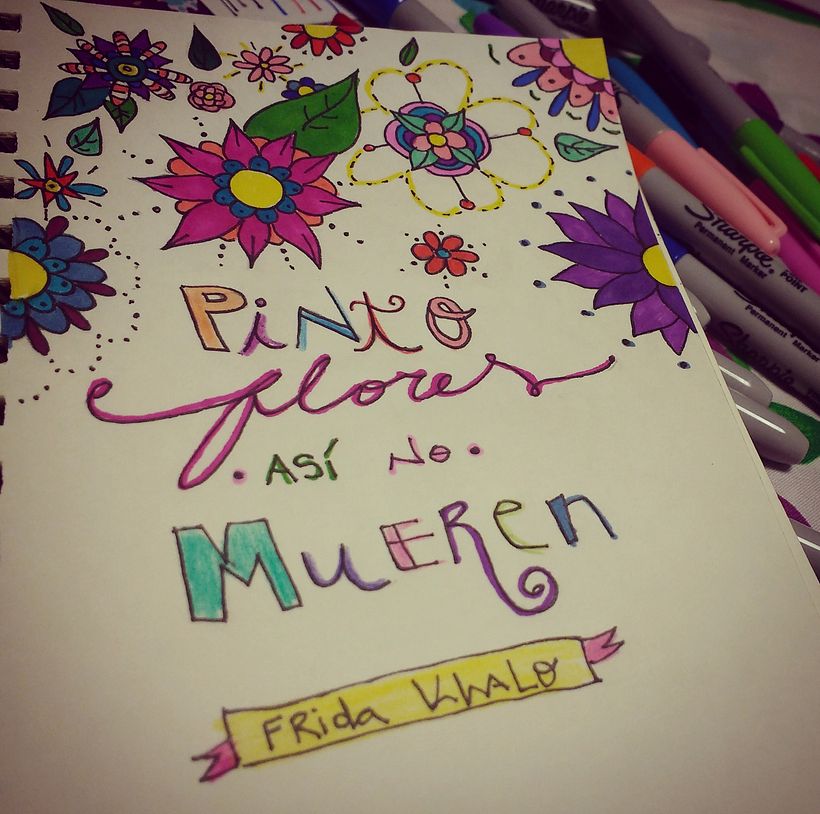 PiNtO
flores
. ASÍ No .
MuEREn
FRida KHALO
Sharpie
Sharpie
Permanent Marker
POINT
Permanent Marker
Sharpie